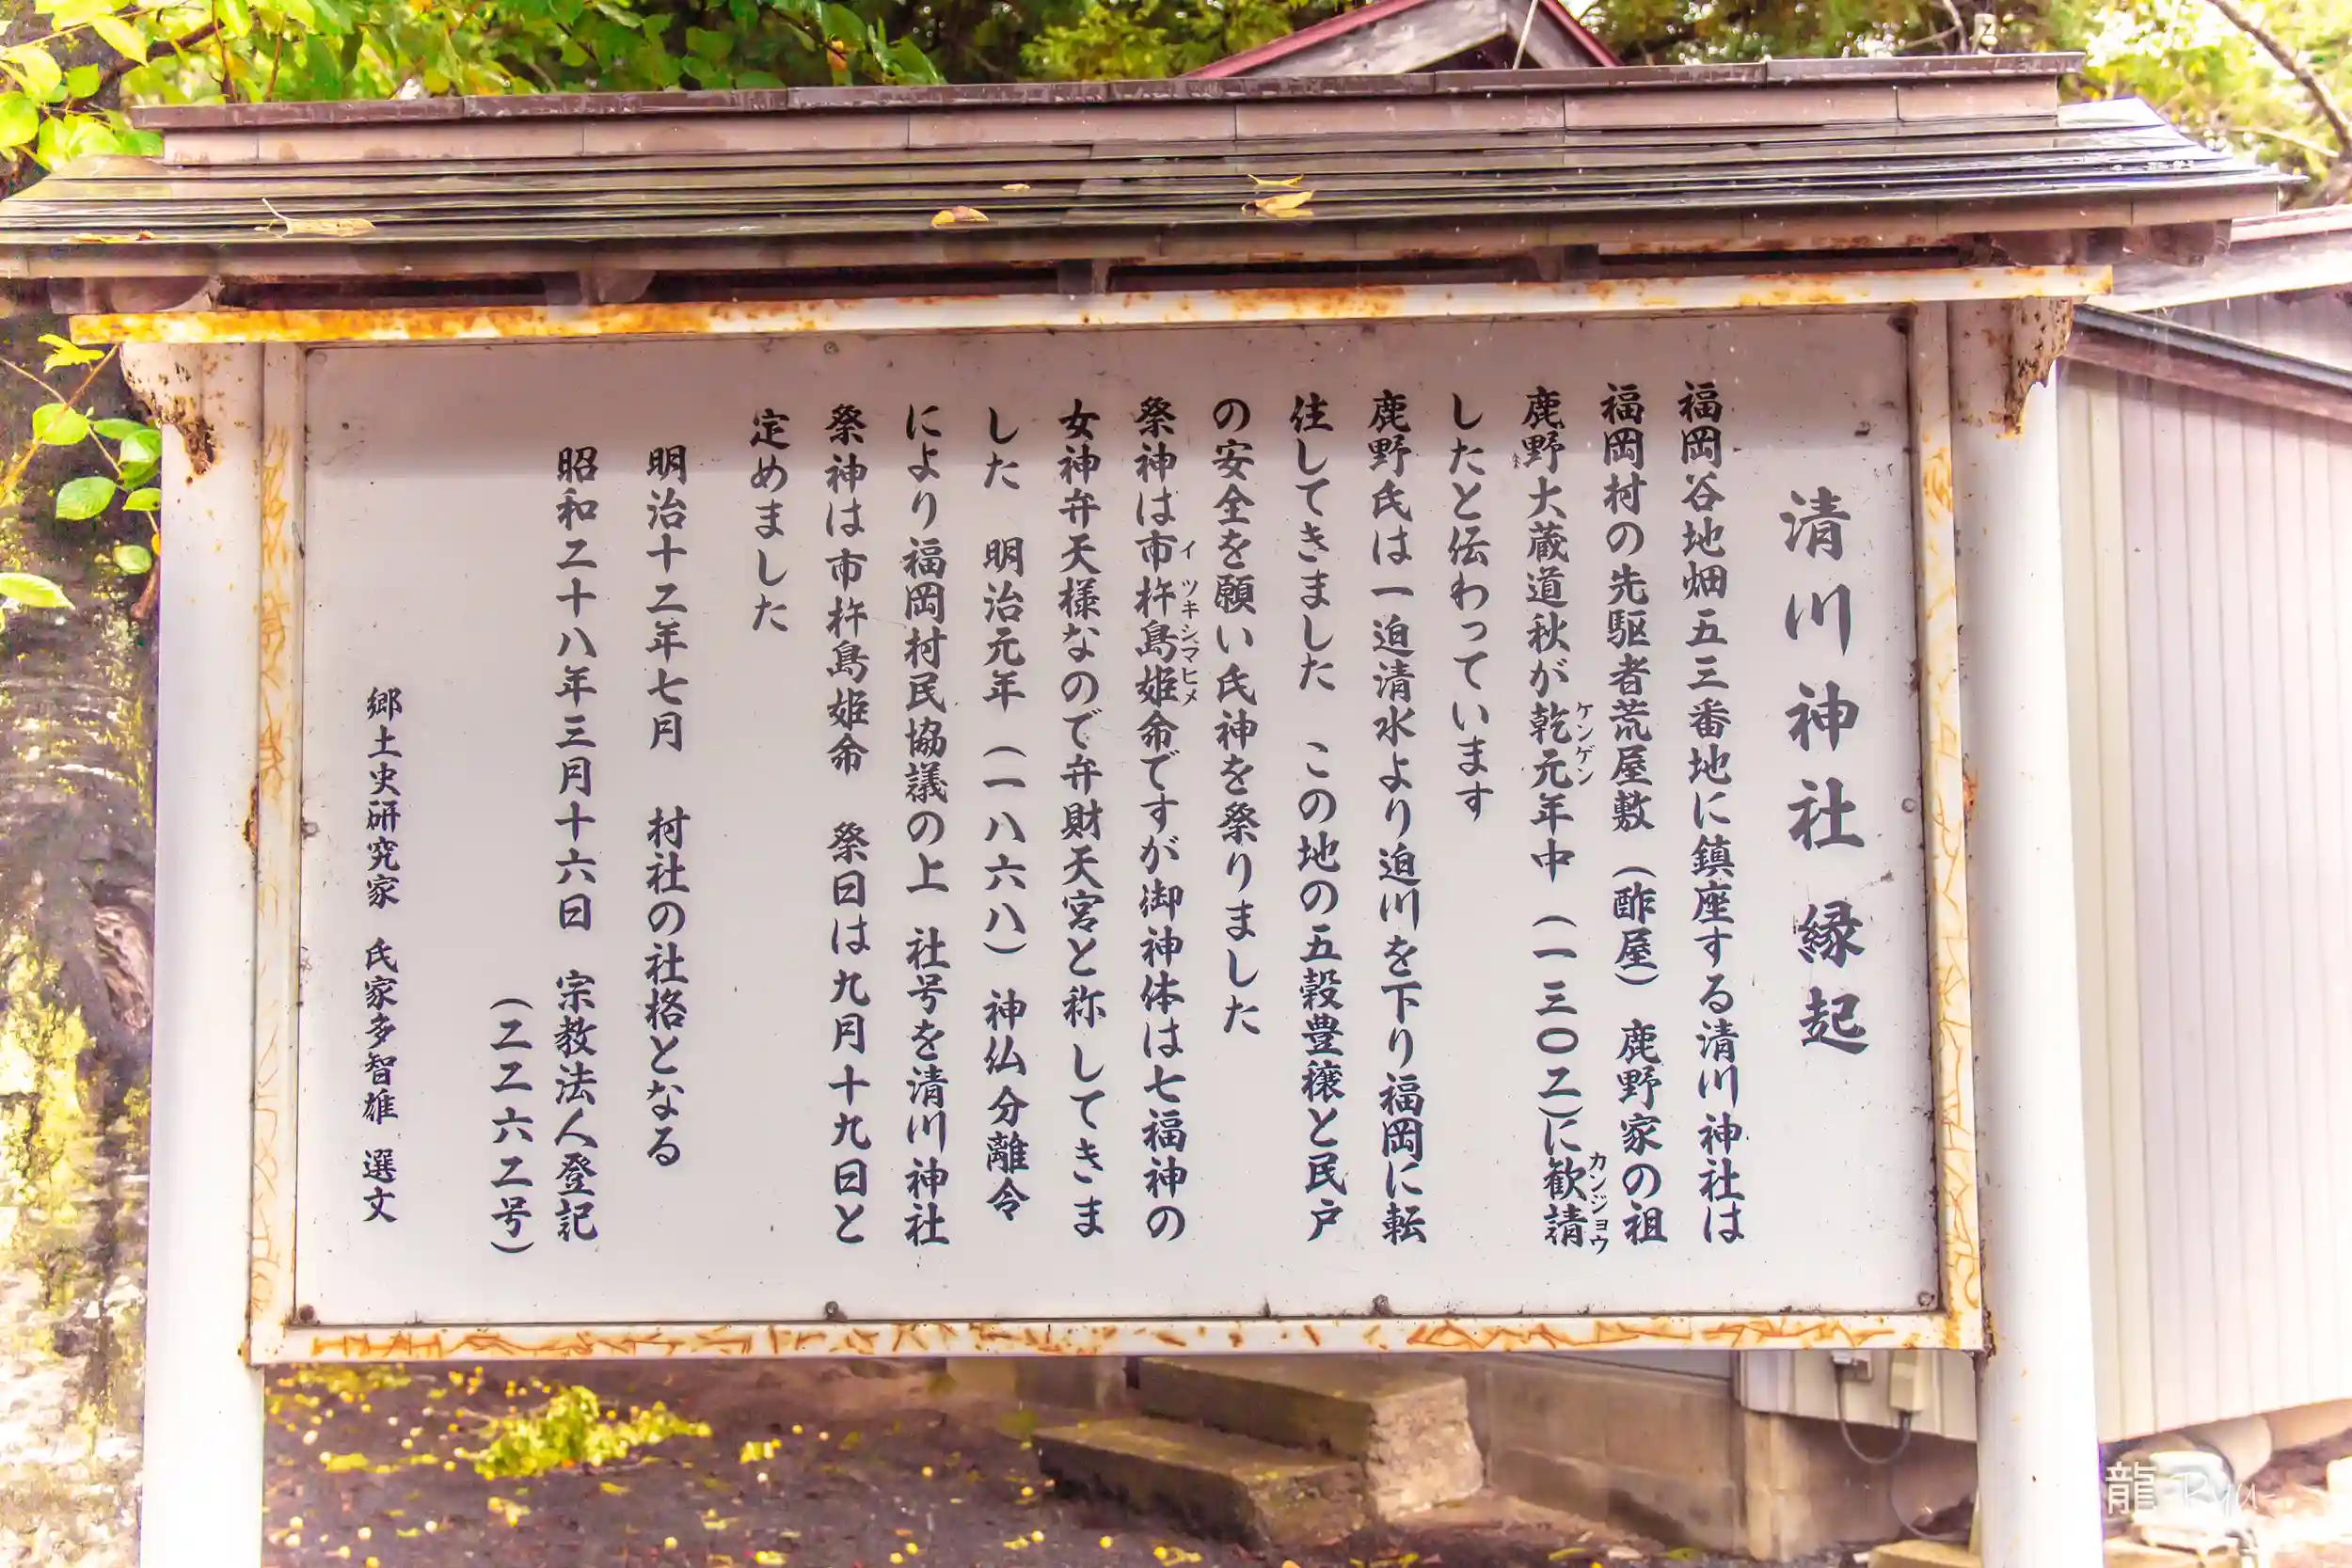 清川神社 縁起
福岡谷地畑五三番地に鎮座する清川神社は
福岡村の先駆者荒屋敷（酢屋） 鹿野家の祖
鹿野大蔵道秋が乾元年中（一三〇二）に歓請
ケンゲン
カンジョウ
したと伝わっています
鹿野氏は一迫清水より迫川を下り福岡に転
住してきました この地の五穀豊穣と民戸
の安全を願い氏神を祭りました
祭神は市杵島姫命ですが御神体は七福神の
イツキシマヒメ
女神弁天様なので弁財天宮と称してきま
した 明治元年（一八六八）神仏分離令
により福岡村民協議の上 社号を清川神社
祭神は市杵島姫命 祭日は九月十九日と
定めました
明治十二年七月 村社の社格となる
昭和二十八年三月十六日 宗教法人登記
（二二六二号）
郷土史研究家 氏家多智雄 選文
龍 Ryu